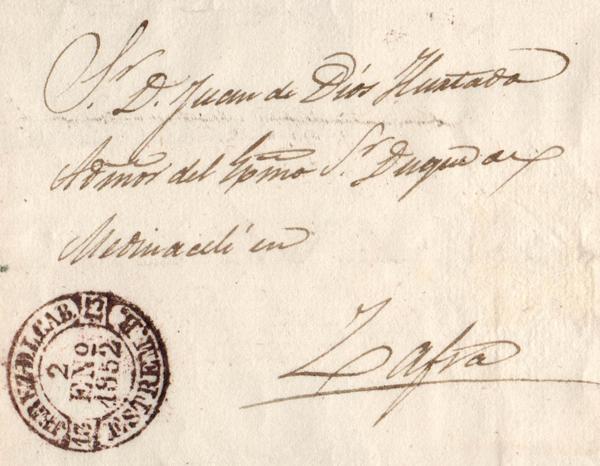 Sr. D. Juan de Dios Hurtado
Admor del Exmo Sr. Duque de
Medinaceli en
Zafra
JEREZ-D.L.CAB.
2
ENO
1852
ESTREM. B.